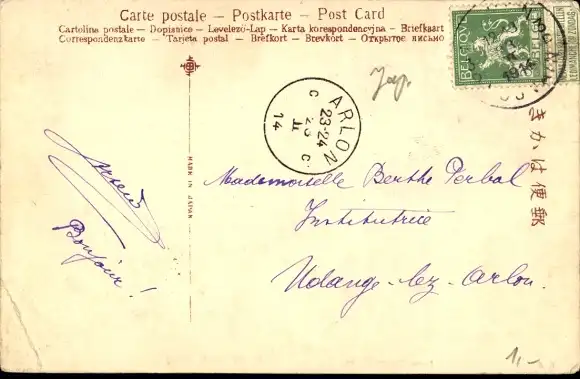 Carte postale – Postkarte – Post Card
Cartolina postale – Dopisnice – Levelező-Lap – Karta korespondencyjna – Briefkaart
Correspondenzkarte – Tarjeta postal – Brefkort – Brevkort – Открытое письмо
BELGIQUE
BELGIË
1914
Jap.
ARLON
23-24
C C
II
14
きかは便郵
MADE IN JAPAN
Mademoiselle Berthe Perbal
Institutrice
Udange-lez-Arlon.
Bonjour!
1,-